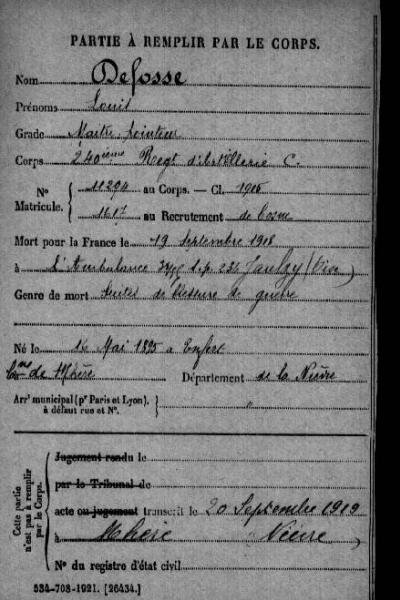 PARTIE À REMPLIR PAR LE CORPS.
Nom Defosse
Prénoms Louis
Grade Maître pointeur
Corps 240ième Regt d'Artillerie C.
N° Matricule. 11294 au Corps. — Cl. 1916
1617 au Recrutement de Cosne
Mort pour la France le 19 Septembre 1918
à l'Ambulance S.p. 234 Jaulzy (Oise)
Genre de mort Suites de blessure de guerre
Né le 14 Mai 1895 à Enfert
Cne de Mhère Département de la Nièvre
Arrt municipal (pr Paris et Lyon), à défaut rue et N°. "
Cette partie n'est pas à remplir par le Corps.
Jugement rendu le
par le Tribunal de
acte ou jugement transcrit le 20 Septembre 1919
à Mhère Nièvre
N° du registre d'état civil
534-708-1921. [26434.]